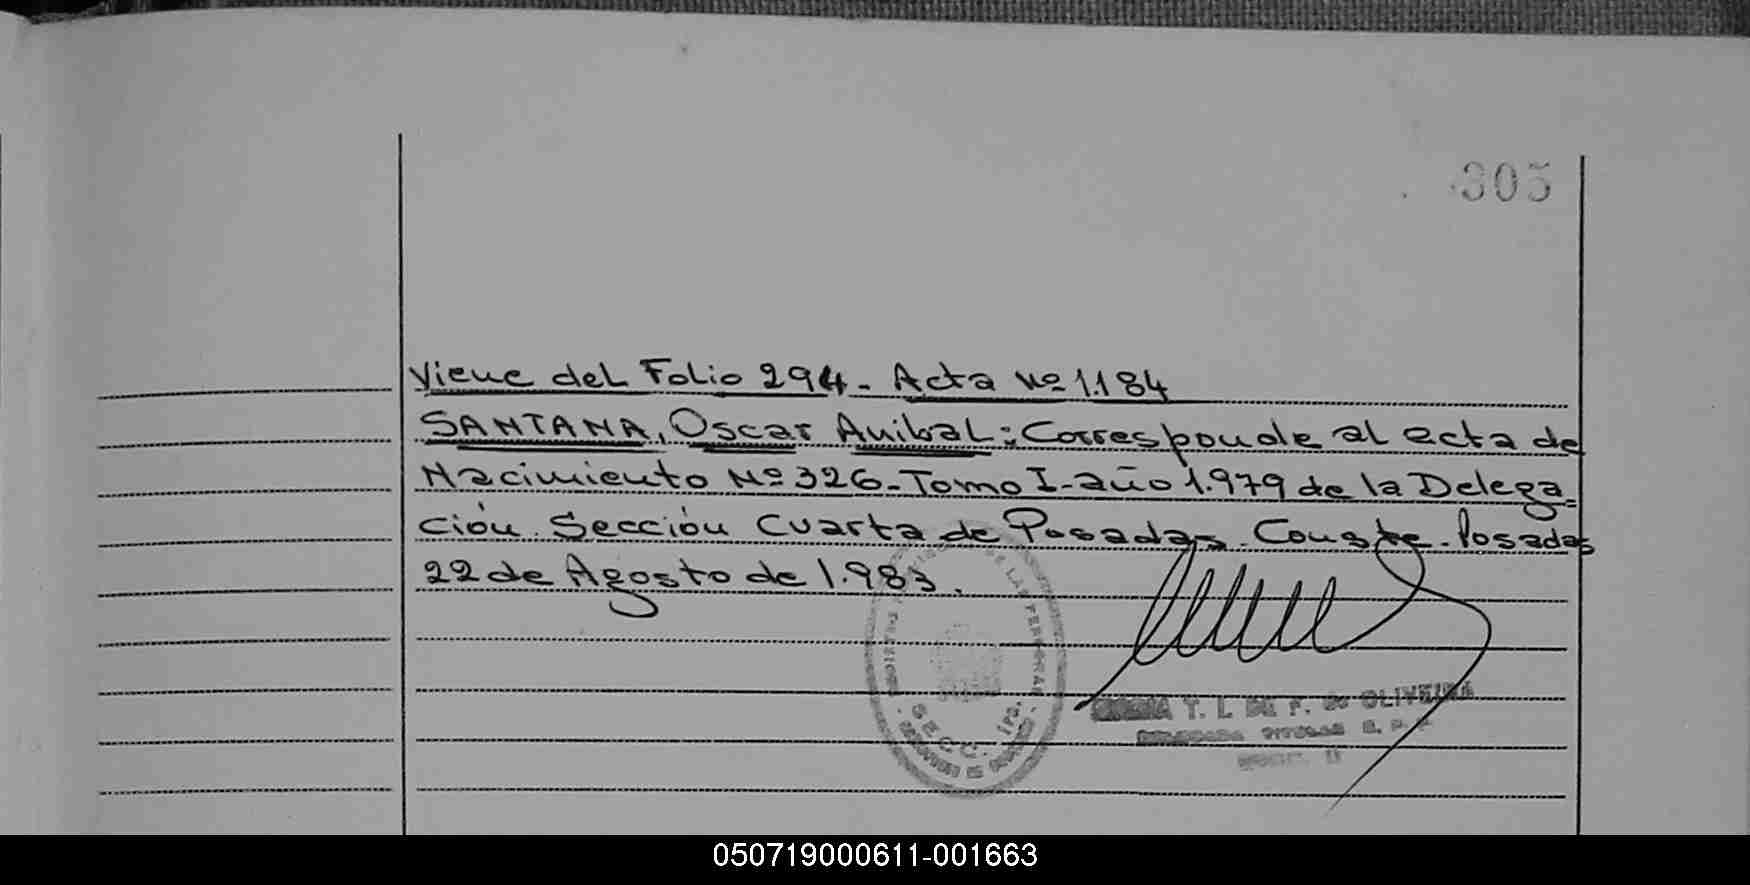 305
Viene del Folio 294- Acta Nº 1.184
SANTANA, Oscar Anibal: Corresponde al acta de
Nacimiento Nº 326- Tomo I- año 1.979 de la Delega=
ción Sección Cuarta de Posadas. Conste. Posadas
22 de Agosto de 1.983.
DE LAS PERSONAS
SECC. 1RA.
T. L. DE F. DE OLIVEIRA
TITULAR
050719000611-001663